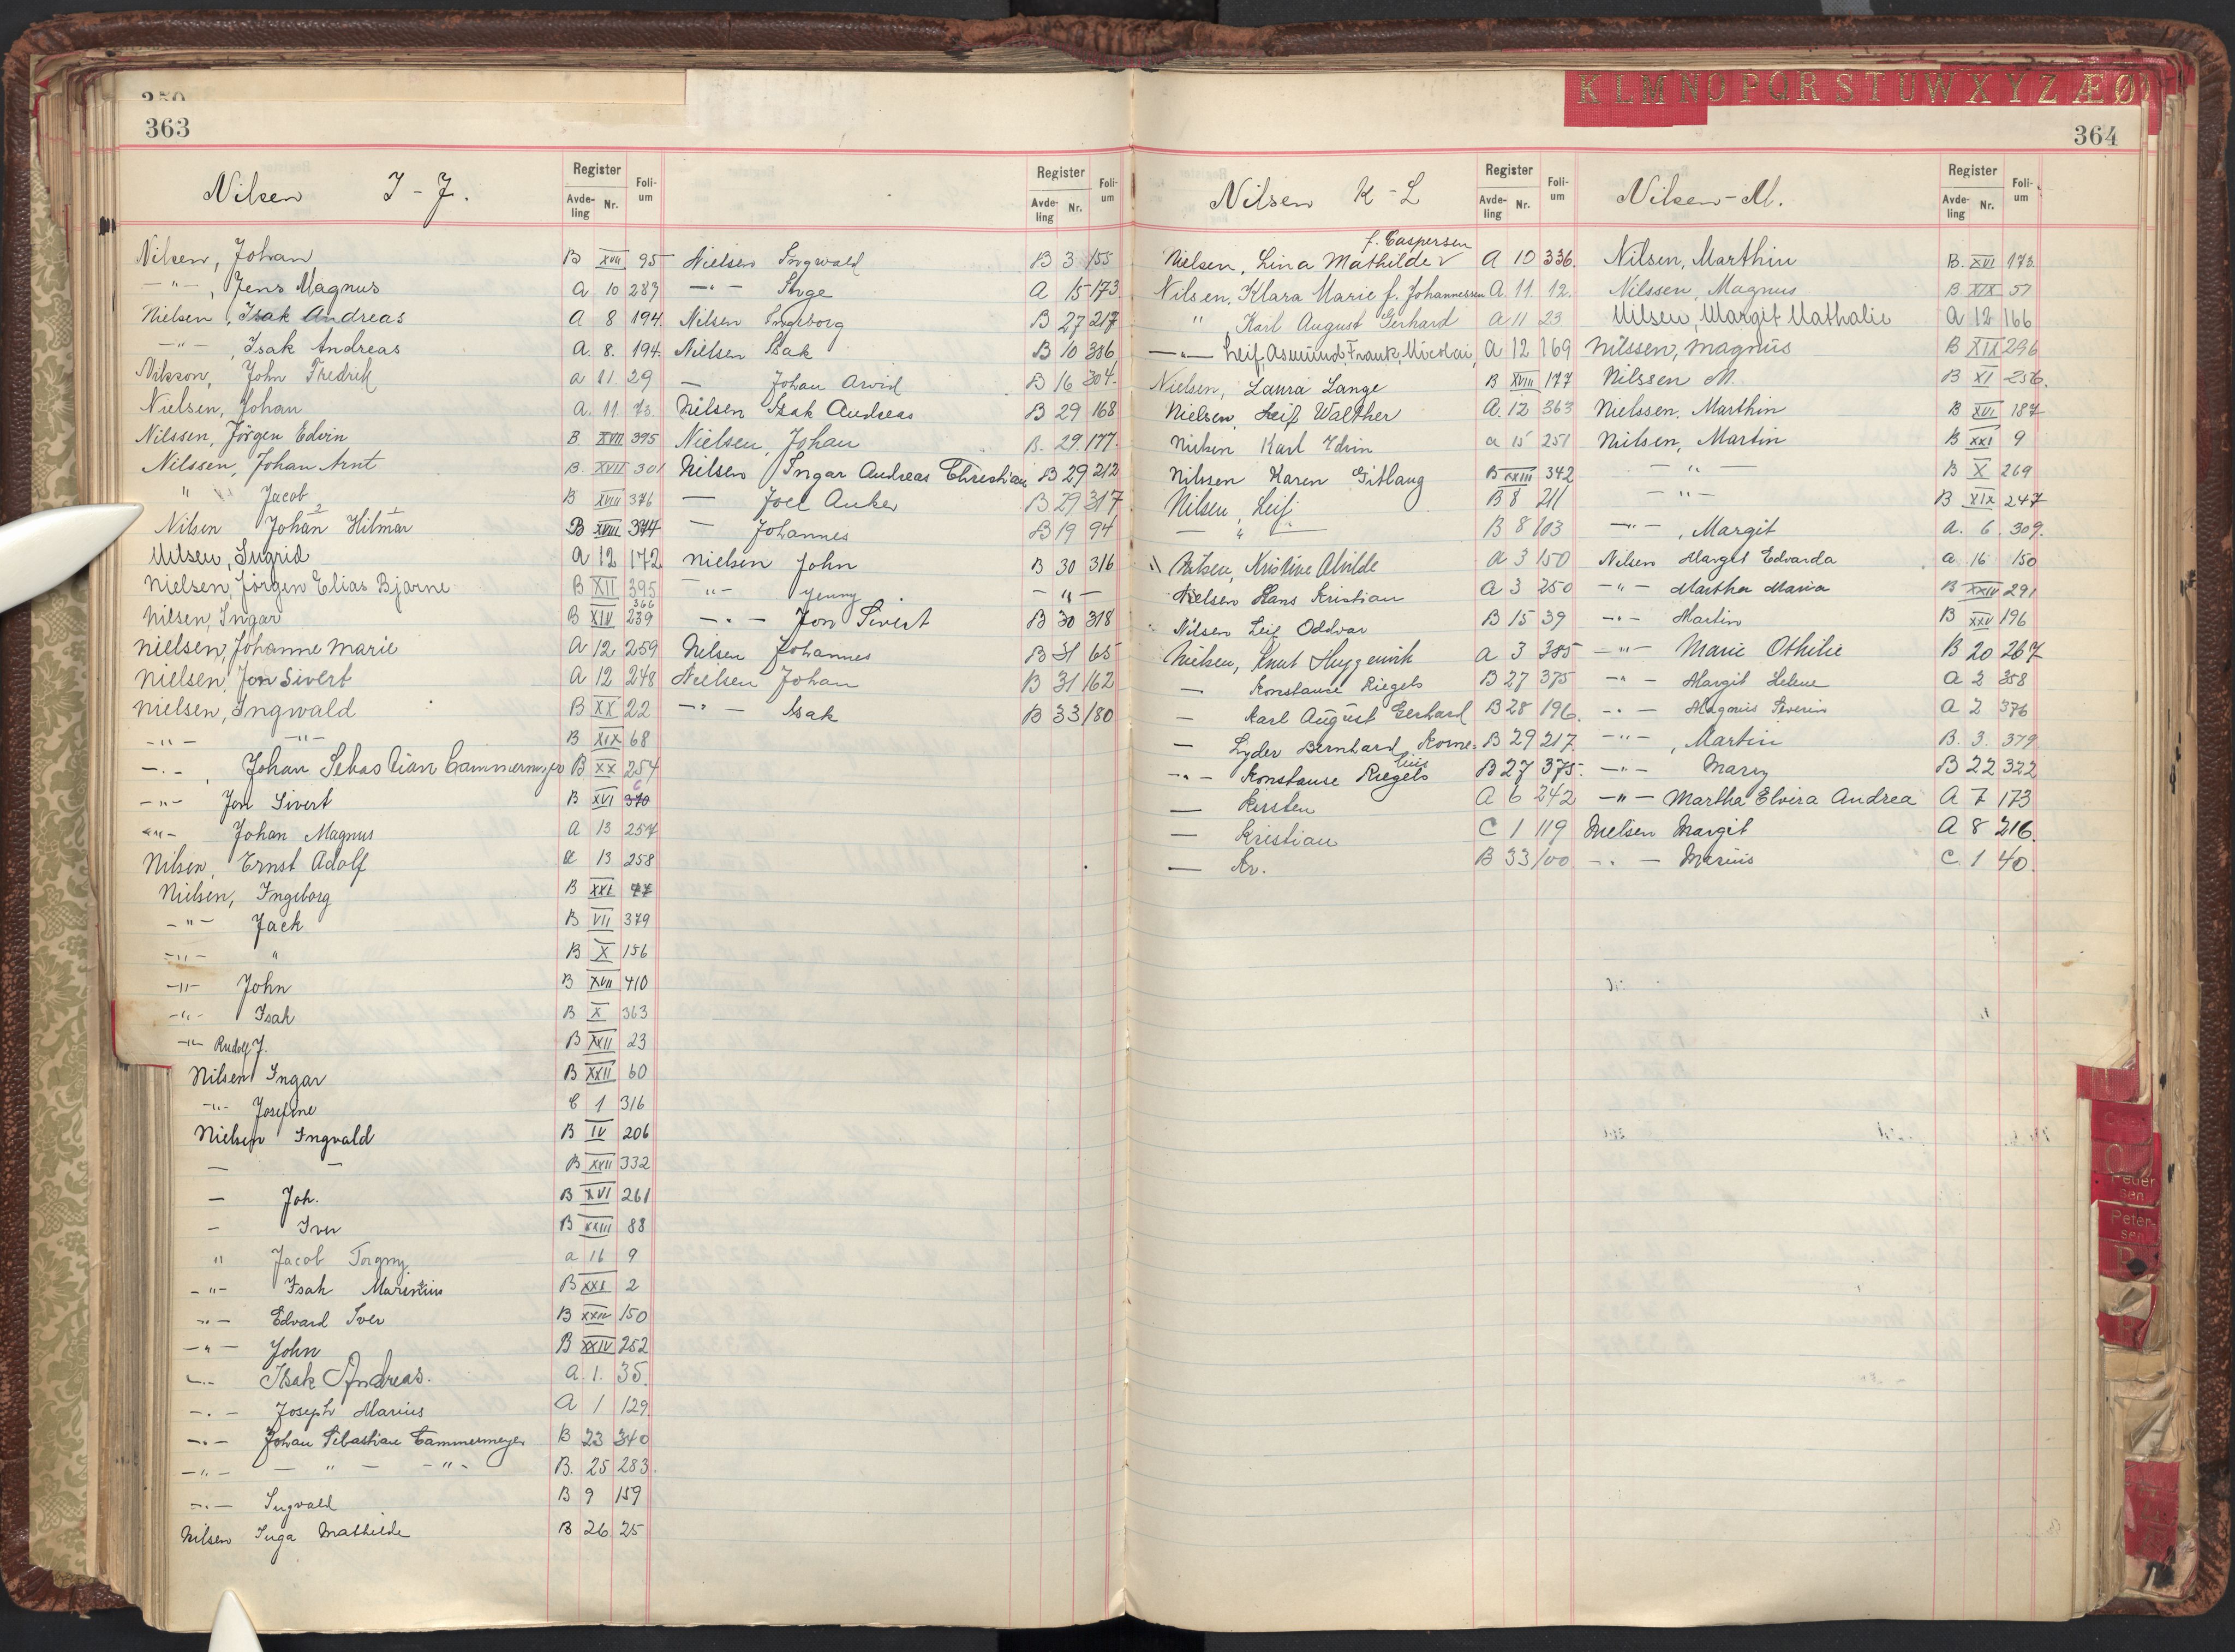 K L M N O P Q R S T U W X Y Z Æ Ø
350
363
Nilsen I - J.
Register
Avde-ling Nr. Foli-um
Nilsen, Johan B XVII 95
-"- , Jens Magnus A 10 289
Nielsen, Isak Andreas A 8 194
-"- , Isak Andreas A. 8. 194
Nilsson, John Fredrik a 11 29
Nielsen, Johan A. 11 73
Nilssen, Jörgen Edvin B. XVII 395
Nilssen, Johan Arnt B. XVII 301
" Jacob B XVIII 376
Nilsen Johan Hilmar B XVIII 344
Nilsen, Ingrid A 12 172
Nielsen, Jörgen Elias Bjarne B XII 395
Nilsen, Ingar B XIV 239 366
Nielsen, Johanne Marie A 12 259
Nielsen, Jon Sivert A 12 248
Nielsen, Ingwald B XX 22
-"- -"- B XIX 68
-"- , Johan Sebastian Cammermeyer B XX 254
-"- Jon Sivert B XVI 370
-"- Johan Magnus A 13 257
Nilsen, Ernst Adolf a 13 258
Nielsen, Ingeborg B XXI 77
-"- Jack B VII 379
-"- " B X 156
-"- John B XVII 410
-"- Isak B X 363
-"- Rudolf J. B XXII 23
Nilsen Ingar B XXII 60
-"- Josefine C 1 316
Nielsen Ingvald B IV 206
— — B XXII 332
— Joh. B XVI 261
- Iver B XXIII 88
" Jacob Torgny a 16 9
-"- Isak Marentius B XXI 2
-"- Edvard Iver B XXIV 150
-"- John B XXIV 252
-"- Isak Andreas. A. 1. 35.
-"- Joseph Marius A 1 129
-"- Johan Sebastian Cammermeyer B 23 340
-"- — " — -"- B. 25 283.
-"- Ingvald B 9 159
Nilsen Inga Mathilde B 26 25
Register
Avde-ling Nr. Foli-um
Nielsen Ingwald B 3 155
-"- Inge A 15 173
Nilsen Ingeborg B 27 217
Nielsen Isak B 10 386
— Johan Arvid B 16 304.
Nilsen Isak Andreas B 29 168
Nielsen, Johan B. 29. 177.
Nilsen Ingar Andreas Christian B 29 212
— Joel Anker B 29 317
— Johannes B 19 94
Nielsen John B 30 316
-"- Jenny — " —
-"- Jon Sivert B 30 318
Nilsen Johannes B 31 65
Nielsen Johan B 31 162
-"- Isak B 33 180
364
Nilsen K - L
Register
Avde-ling Nr. Foli-um
f. Caspersen
Nielsen, Lina Mathilde A 10 336.
Nilsen, Klara Marie f. Johannessen A. 11. 12.
" , Karl August Gerhard A 11 23
-"- Leif, Asmund, Frank, Nicolai, A 12 169
Nielsen, Laura Lange B XVIII 177
Nielsen, Leif Walther A. 12 363
Nielsen Karl Edvin a 15 251
Nilssen Karen Gitlaug B XXIII 342
Nilsen, Leif B 8 211
— " — B 8 103
Nilsen, Kristine Alvilde a 3 150
Nielsen Hans Kristian A 3 250
Nilsen Leif Oddvar B 15 39
Nielsen, Knut Huggenvik a 3 385
— Konstanse Riegels B 27 375
— Karl August Gerhard B 28 196.
— Lyder Bernhard Korne- B 29 217
lius
-"- Konstanse Riegels B 27 375.
— Kirsten A 6 242
— Kristian C 1 119
— Kr. B 33 100
Nilsen - M.
Register
Avde-ling Nr. Foli-um
Nilsen, Marthin B. XVI 173
Nilssen, Magnus B XIX 51
Nilsen, Margit Nathalie A 12 166
Nilssen, Magnus B XIX 296
Nilssen M. B XI 256.
Nielssen, Marthin B XVI 187
Nielsen, Martin B XXI 9
— " — B X 269
— " — B XIX 247
-"- , Margit A. 6. 309.
Nilsen Margit Edvarda a. 16 150
-"- Martha Maria B XXIV 291
-"- Martin B XXV 196
-"- Marie Othilie B 20 267
-"- Margit Helene A 2 358
-"- Magnus Severin A 2 376
-"- , Martin B. 3. 379
-"- Mary B 22 322
-"- Martha Elvira Andrea A 7 173
Nielsen Margit A 8 216.
-"- Marius C. 1 40.
Peder
sen
Peter-
sen
P